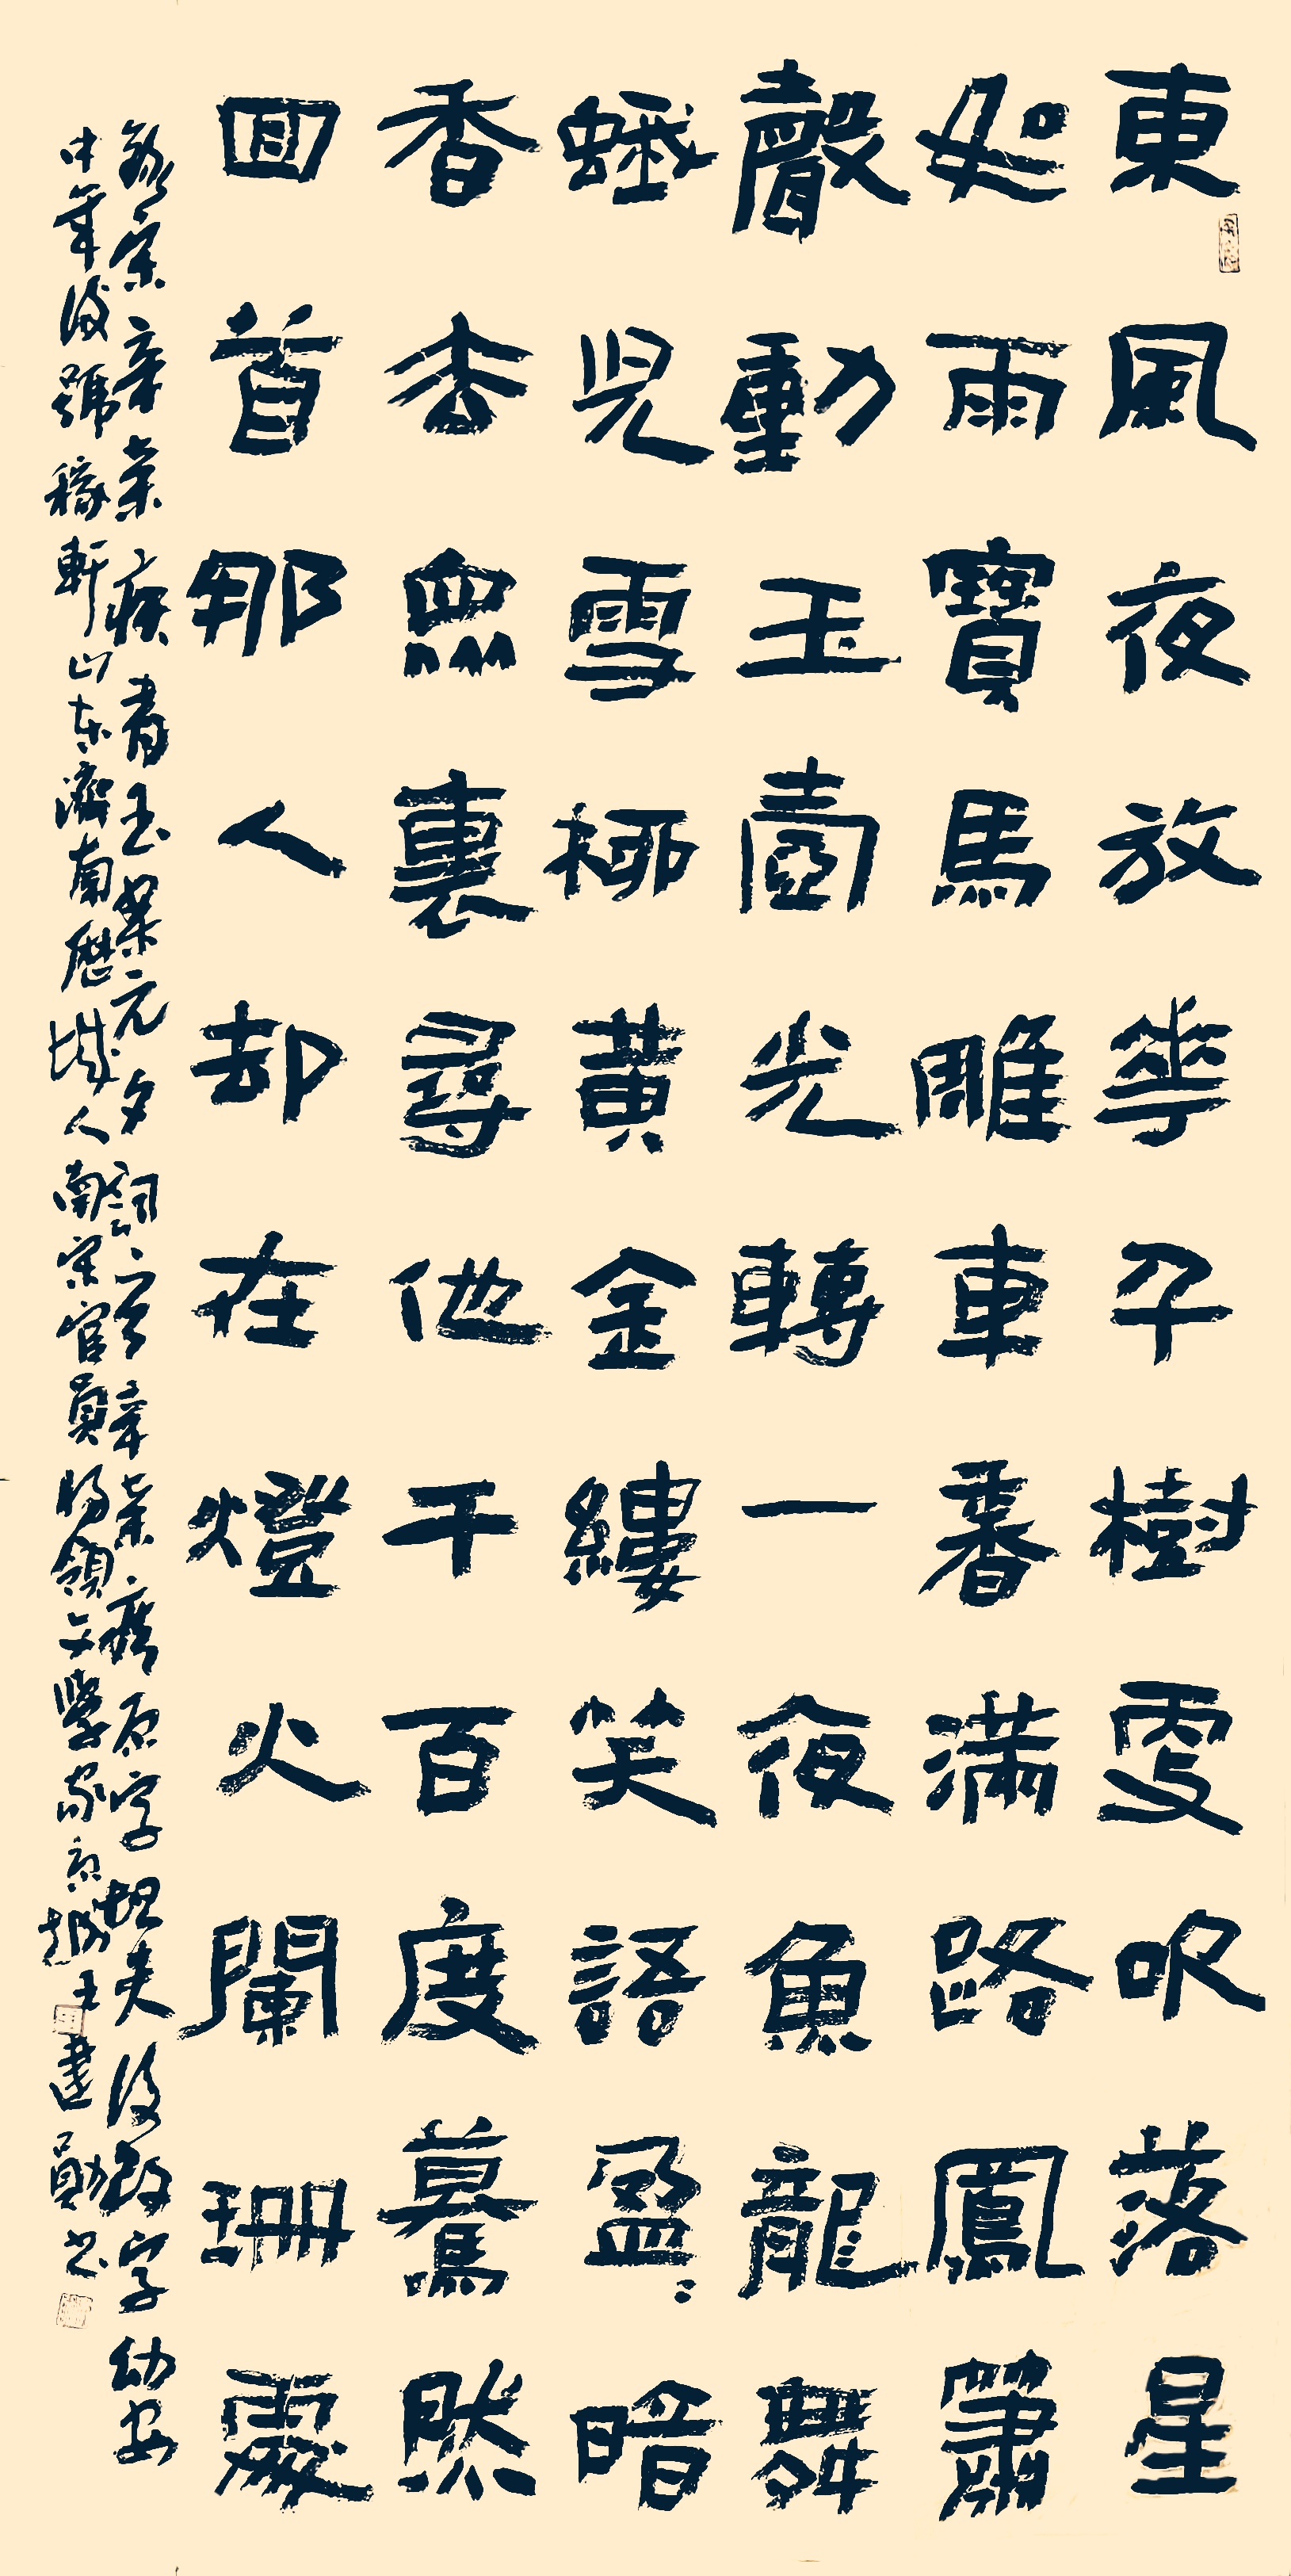 東風夜放華千樹更吹落星
如雨寶馬雕車香滿路鳳簫
聲動玉壺光轉一夜魚龍舞
蛾兒雪柳黃金縷笑語盈〻暗
香去眾裏尋他千百度驀然
回首那人却在燈火闌珊處
錄宋辛棄疾青玉案元夕詞辛棄疾原字坦夫後改字幼安
中年後號稼軒山东濟南歷城人南宋官員將領文學家建勛书